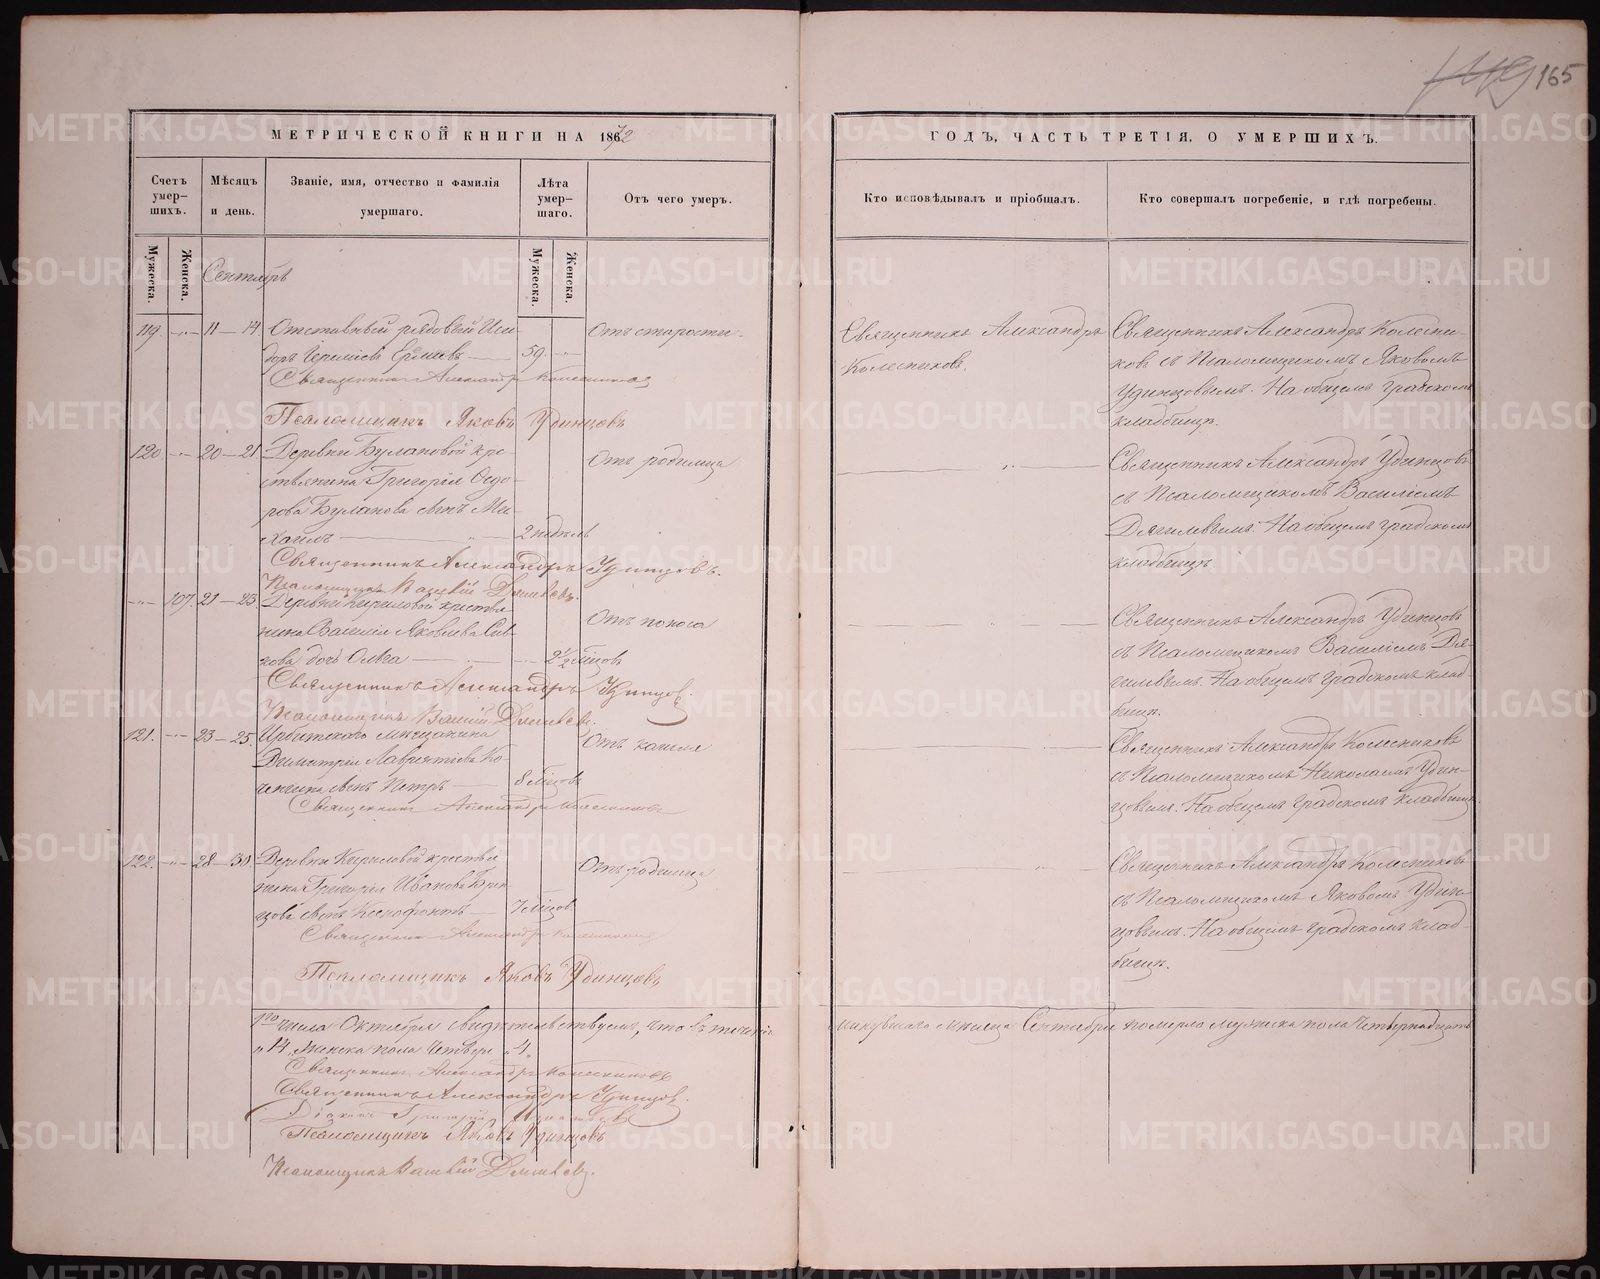 165
МЕТРИЧЕСКОЙ КНИГИ НА 1872
ГОДЪ, ЧАСТЬ ТРЕТІЯ, О УМЕРШИХЪ.
Счетъ умер-шихъ.
Мѣсяцъ и день.
Званіе, имя, отчество и фамилія умершаго.
Лѣта умер-шаго.
Отъ чего умеръ.
Кто исповѣдывалъ и пріобщалъ.
Кто совершалъ погребеніе, и гдѣ погребены.
Мужеска.
Женска.
Мужеска.
Женска.
Сентябрь
119. 11 — 14 Отставный рядовый Иси-
доръ 59.
Отъ старости.
Священникъ Александръ Колесниковъ
Псаломщикъ Яковъ Удинцовъ
Священникъ Александръ
Колесниковъ.
Священникъ Александръ Колесни-
ковъ съ Псаломщикомъ Яковомъ
Удинцовымъ. На общемъ градскомъ
кладбищѣ.
120 20 — 21 Деревни Булановой кре-
стьянина Григорія Ѳедо-
рова Буланова сынъ Ми-
хаилъ 2 недѣль
Отъ родимца
Священникъ Александръ Удинцовъ.
Псаломщикъ Василій Дягилевъ.
Священникъ Александръ Удинцовъ
съ Псаломщикомъ Василіемъ
Дягилевымъ. На общемъ градскомъ
кладбищѣ.
107. 21 — 23. Деревни Кириловой крестья-
нина Василія Яковлева
дочь Ольга 2 1/2 мѣсцовъ
Отъ поноса
Священникъ Александръ Удинцовъ.
Псаломщикъ Василій Дягилевъ.
Священникъ Александръ Удинцовъ
съ Псаломщикомъ Василіемъ Дя-
гилевымъ. На общемъ градскомъ клад-
бищѣ.
121. 23 — 25. Ирбитскаго мѣщанина
Димитрія Лаврентіева Ко-
сынъ Петръ 8 мѣсцовъ
Отъ кашля
Священникъ Александръ Колесниковъ
Священникъ Александръ Колесниковъ
съ Псаломщикомъ Николаемъ Удин-
цовымъ. На общемъ градскомъ кладбищѣ.
122. 28 — 30. Деревни Кириловой крестья-
нина Григорія Иванова
сынъ Ксенофонтъ 7 мѣсцов
Отъ родимца
Священникъ Александръ Колесниковъ
Псаломщикъ Яковъ Удинцовъ
Священникъ Александръ Колесниковъ
съ Псаломщикомъ Яковомъ Удин-
цовымъ. На общемъ градскомъ клад-
бищѣ.
1го числа Октября свидѣтельствуемъ, что въ теченіе минувшаго мѣсяца Сентября померло мужеска пола четырнадцать
„14„ женска пола четыре „4„
Священникъ Александръ Колесниковъ
Священникъ Александръ Удинцовъ.
Діаконъ Григорій
Псаломщикъ Яковъ Удинцовъ
Псаломщикъ Василій Дягилевъ.
METRIKI.GASO-URAL.RU